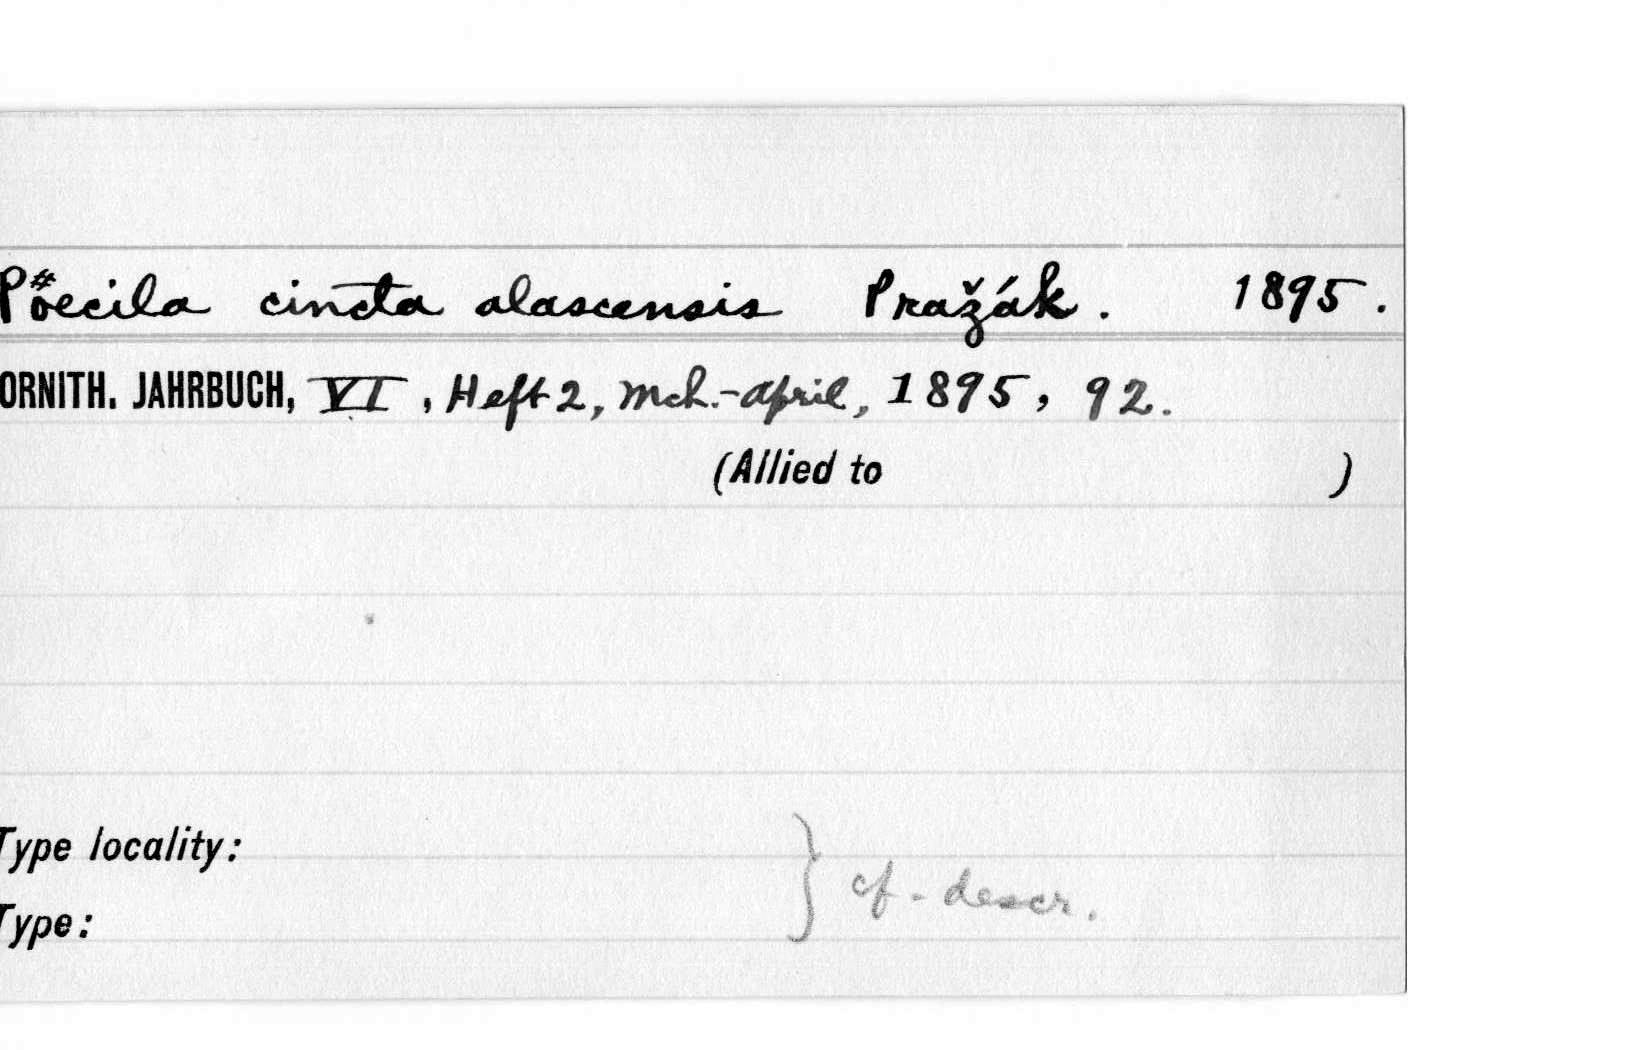 Pöecila cincta alascensis Pražák. 1895.
ORNITH. JAHRBUCH, VI, Heft 2, Mch.-April, 1895, 92.
(Allied to )
Type locality:
Type: } cf. descr.